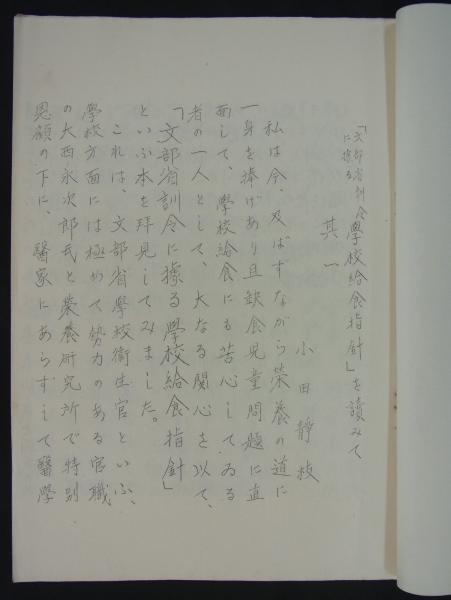 「文部省訓令に據る學校給食指針」を讀みて
其一
小田靜枝
私は今、及ばずながら榮養の道に
一身を捧げあり且缺食児童問題に直
面して、學校給食にも苦心してゐる
者の一人として、大なる関心を以て、
「文部省訓令に據る學校給食指針」
といふ本を拝見してみました。
これは、文部省學校衛生官といふ、
學校方面には極めて勢力のある官職
の大西永次郎氏と榮養研究所で特別
恩顧の下に、醫家にあらずして醫學